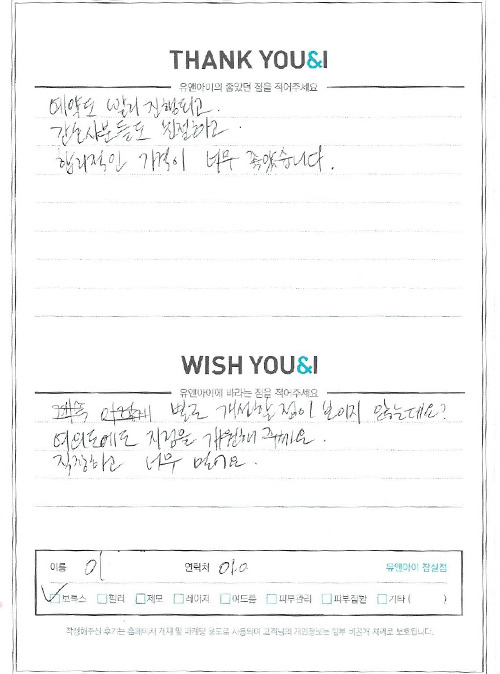 THANK YOU&I
유앤아이의 좋았던 점을 적어주세요
예약도 빨리 진행되고.
간호사분들도 친절하고.
합리적인 가격이 너무 좋았습니다.
WISH YOU&I
유앤아이에 바라는 점을 적어주세요
별로 개선할 점이 보이지 않는데요?
여의도에도 지점을 개원해 주세요.
직장하고 너무 멀어요.
이름 이 연락처 010 유앤아이 잠실점
보톡스 필러 제모 레이저 여드름 피부관리 피부질환 기타 ( )
작성해주신 후기는 홈페이지 게재 및 마케팅 용도로 사용되며 고객님의 개인정보는 일부 비공개 처리로 보호됩니다.